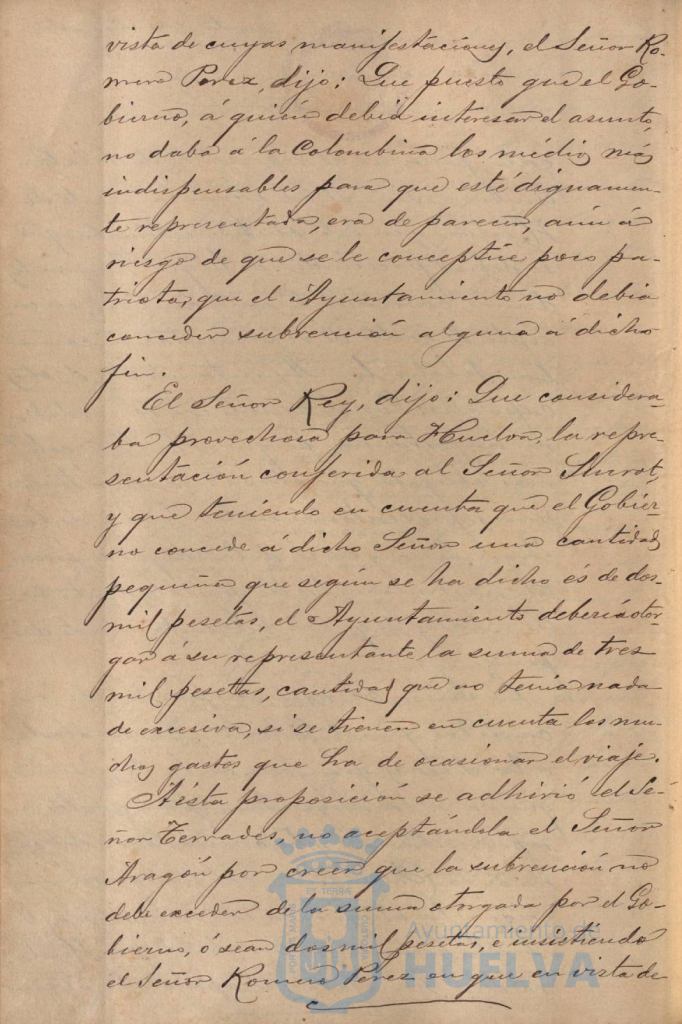 vista de cuyas manifestaciones, el Señor Ro-
mero Perez, dijo: Que puesto que el Go-
bierno, á quien debia interesar el asunto,
no daba á la Colombina los medios más
indispensables para que esté dignamen-
te representada, era de parecer, aún á
riesgo de que se le conceptúe poco pa-
triota, que el Ayuntamiento no debia
conceder subvención alguna á dicho
fin.
El Señor Rey, dijo: Que considera-
ba provechosa para Huelva, la repre-
sentación conferida al Señor Siurot,
y que teniendo en cuenta que el Gobier-
no concede á dicho Señor una cantidad
pequeña que según se ha dicho és de dos
mil pesetas, el Ayuntamiento deberia otor-
gar á su representante la suma de tres
mil pesetas, cantidad que no tenia nada
de excesiva, si se tienen en cuenta los mu-
chos gastos que ha de ocasionar el viaje.
A ésta proposición se adhirió el Se-
ñor Terrades, no aceptándola el Señor
Aragón por creer que la subvención no
debe exceder de la suma otorgada por el Go-
bierno, ó sean dos mil pesetas, é insistiendo
el Señor Romero Perez en que en vista de
Ayuntamiento de
HUELVA